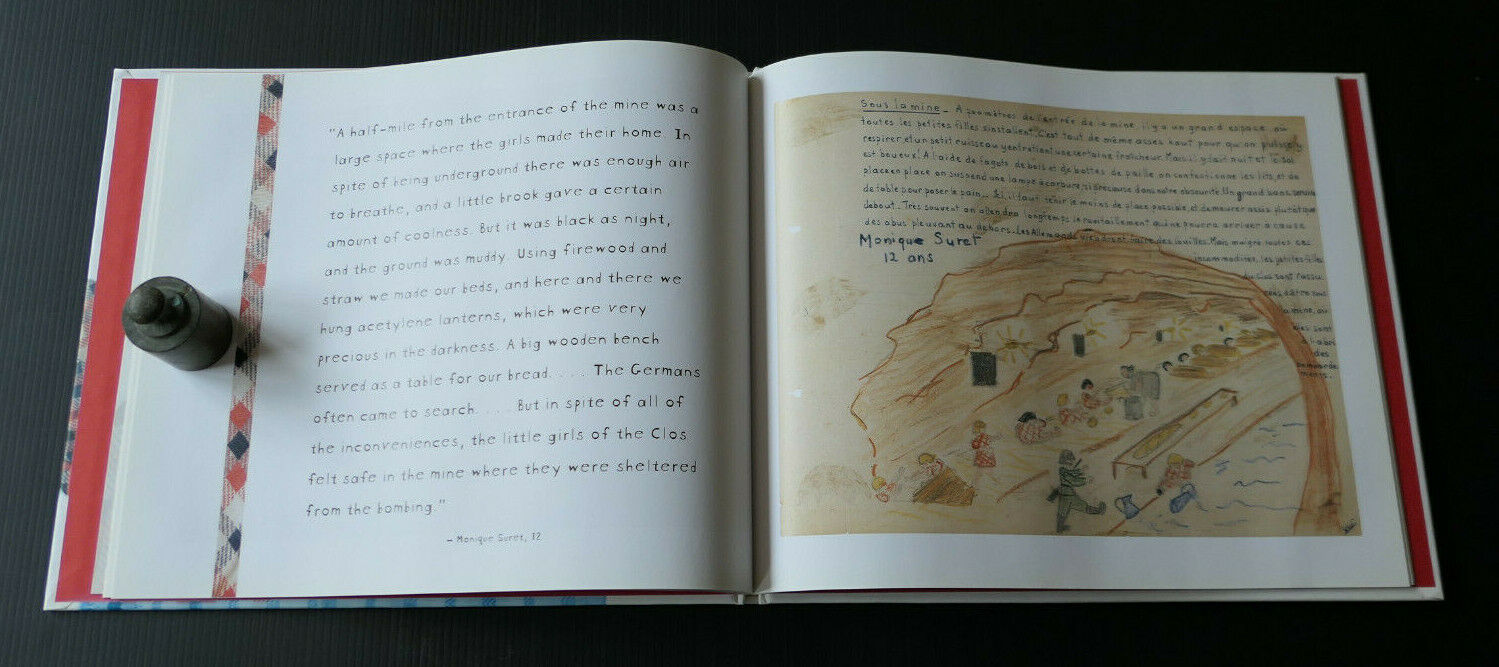 "A half-mile from the entrance of the mine was a
large space where the girls made their home. In
spite of being underground there was enough air
to breathe, and a little brook gave a certain
amount of coolness. But it was black as night,
and the ground was muddy. Using firewood and
straw we made our beds, and here and there we
hung acetylene lanterns, which were very
precious in the darkness. A big wooden bench
served as a table for our bread. . . . The Germans
often came to search. . . . But in spite of all of
the inconveniences, the little girls of the Clos
felt safe in the mine where they were sheltered
from the bombing."
– Monique Suret, 12
Sous la mine _ A de l'entrée de la mine il y a un grand espace où
toutes les petites filles s'installent. C'est tout de même asses haut pour qu'on puisse
respirer, et un petit ruisseau y entretient une certaine fraîcheur. Mais il y fait nuit et le sol
est boueux! A l'aide de fagots de bois et de bottes de paille on confectionne les lits, et de
place en place on suspend une lampe a carbure, si précieuse dans notre obscurité. Un grand banc
de table pour poser le pain_ Ici, il faut tenir le moins de place possible, et demeurer assis plutôt que
debout_ Très souvent on longtemps le ravitaillement qui ne pourra arriver a cause
des obus pleuvant au dehors. Les Allemands faire des fouilles. Mais malgré toutes ces
Monique Suret
12 ans
incommodités, les petites filles
du Clos sont
d'être sous
la mine, où
elles sont
à l'abri
des
bombarde-
ments.